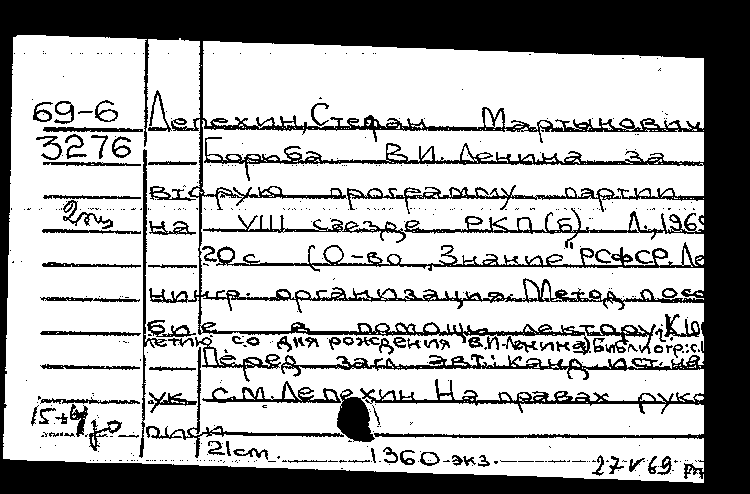 69-6 Лепехин, Стефан Мартынович
3276 Борьба В.И. Ленина за
вторую программу партии
на VIII съезде РКП(б). Л., 1969
20 с. (О-во „Знание" РСФСР. Ле
нингр. организация. Метод. посо
бие в помощь лектору. К 100
летию со дня рождения В.И. Ленина) Библиогр: с.
Перед загл. авт.: канд. ист. на
ук С.М. Лепехин На правах руко
писи
21 см. 1360 экз. 27 V 69